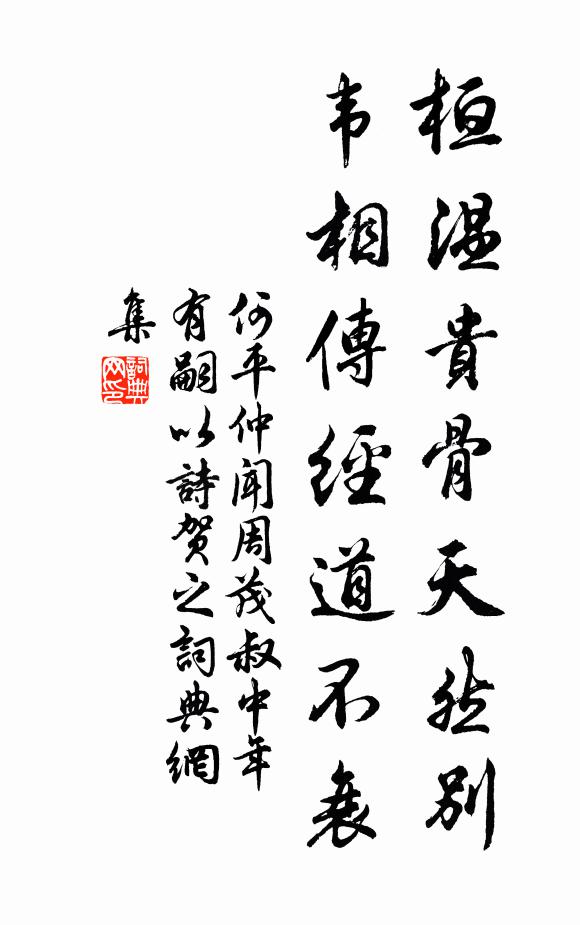 桓温貴骨天然別
韦相傳經道不衰
何平仲聞周茂叔中年
有嗣以詩賀之詞典網
集
詞典
网印